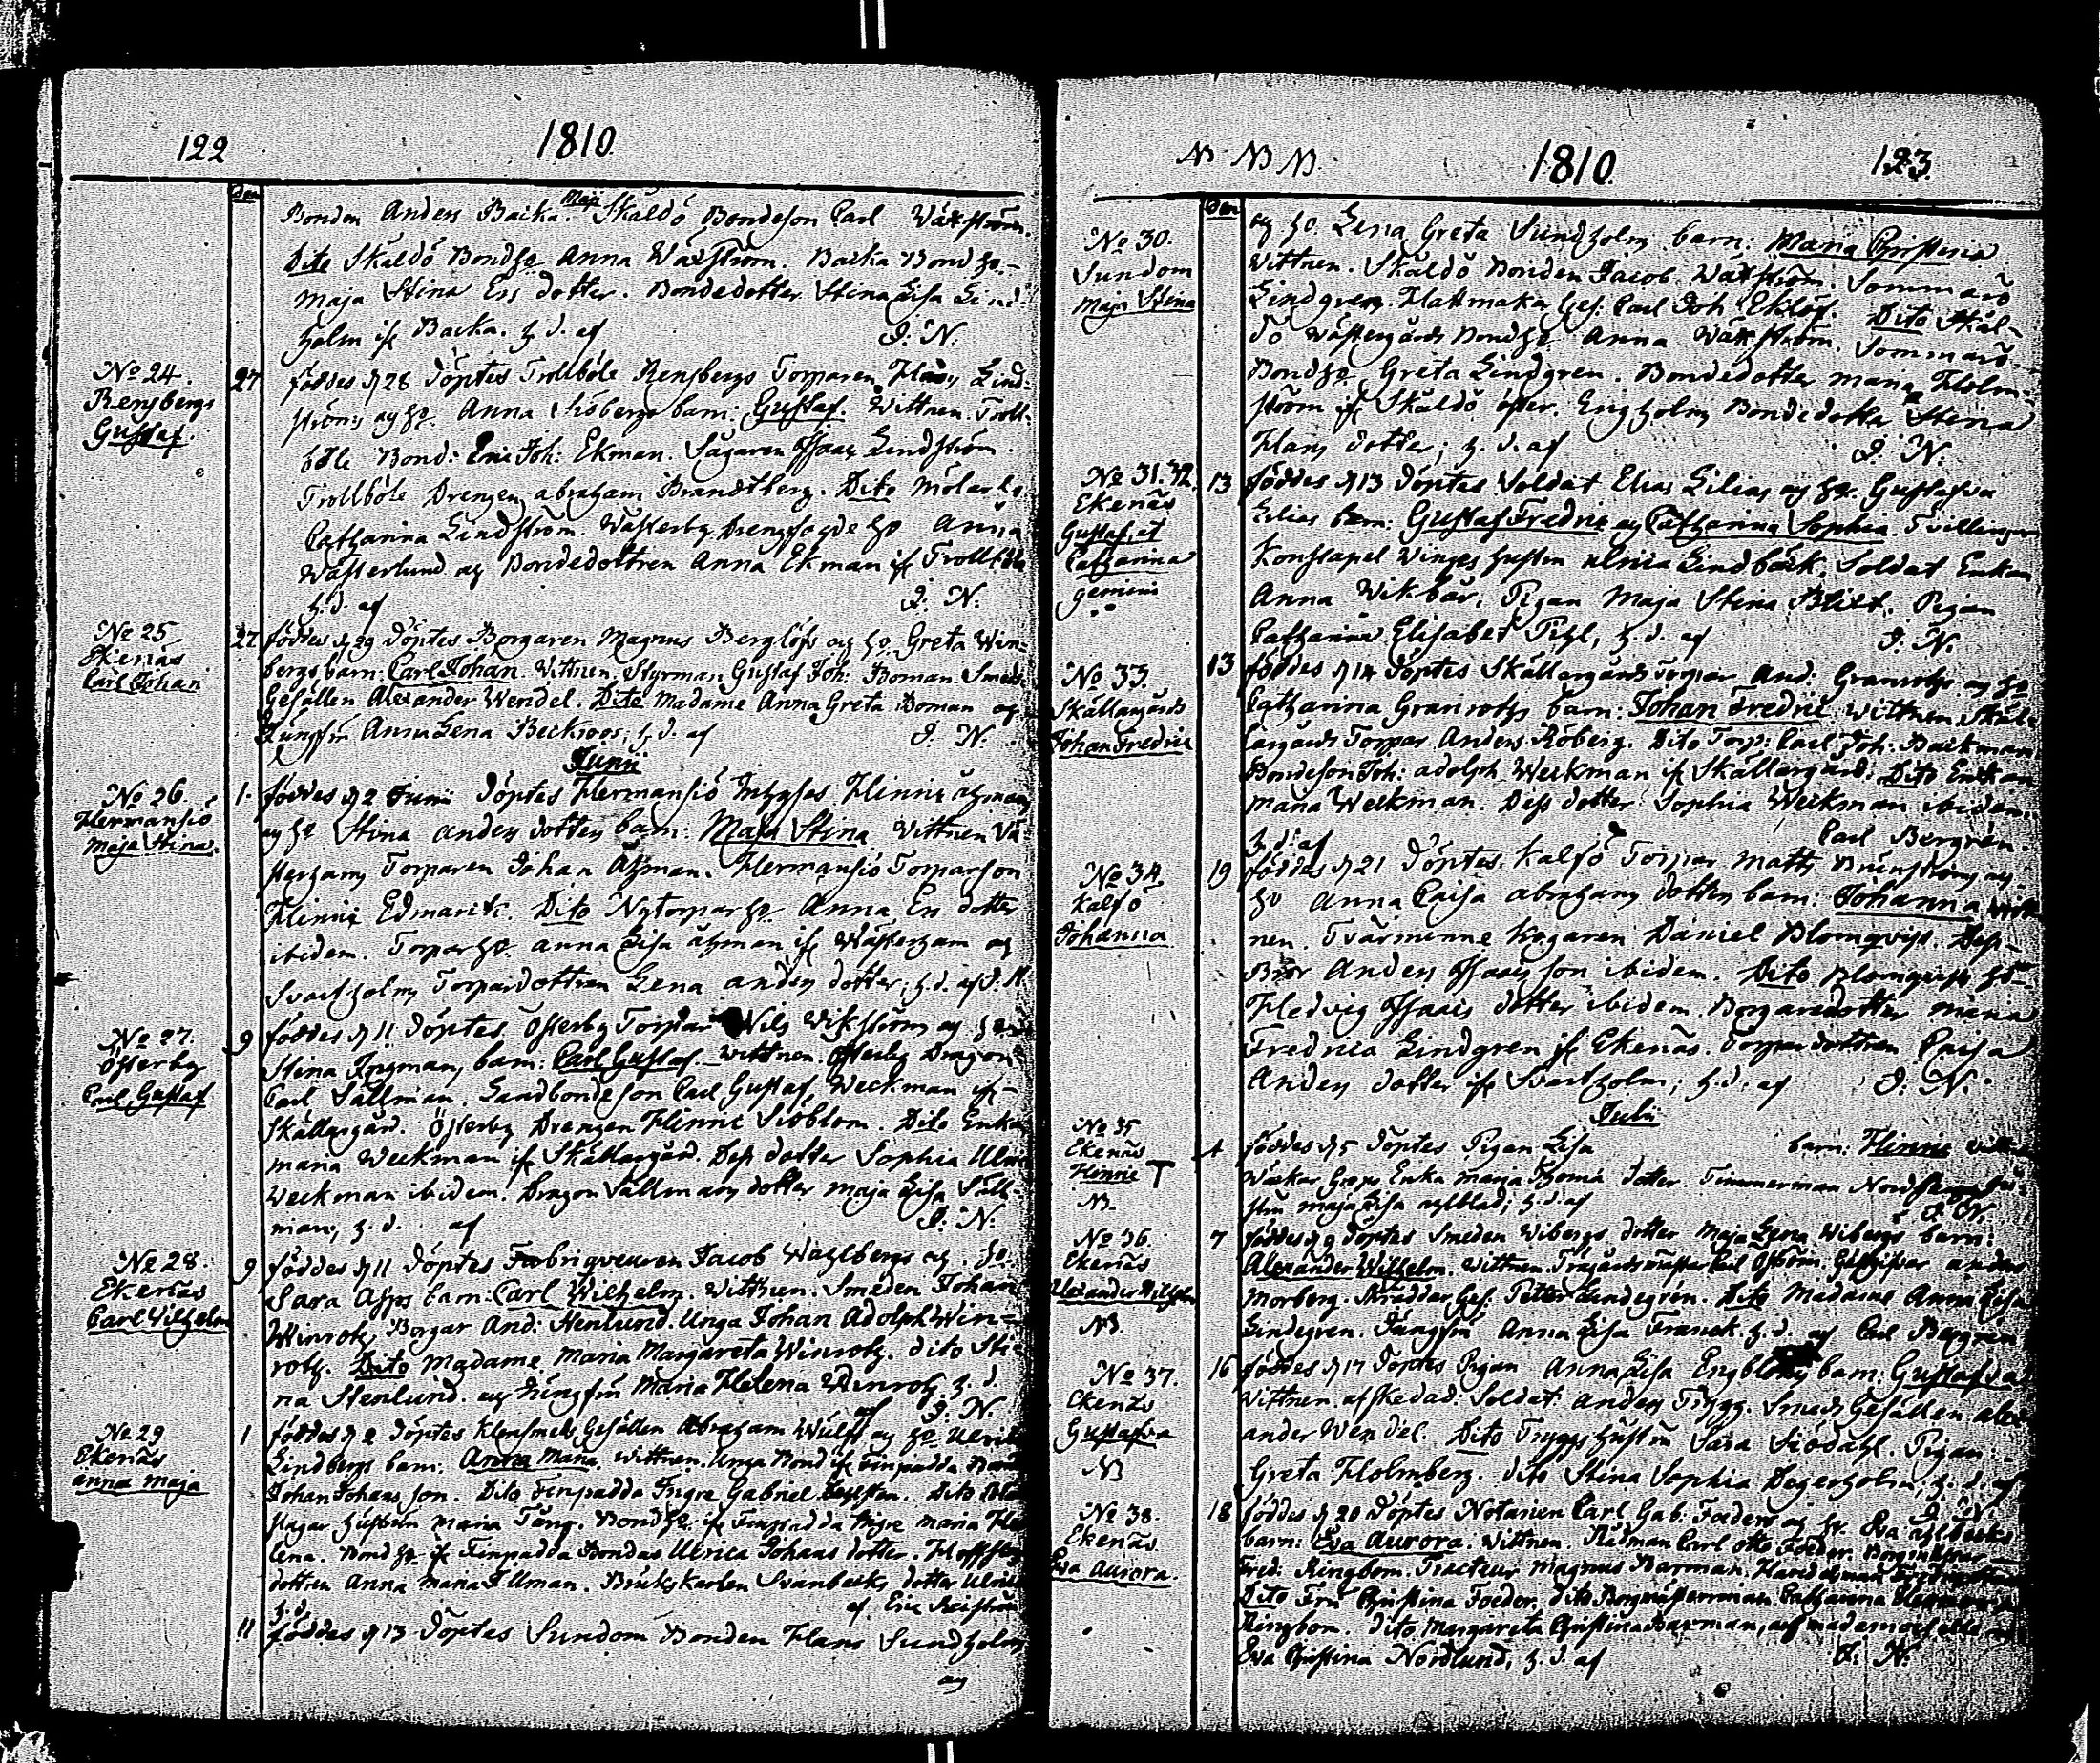 122
1810.
Den
Bonden Anders Backa. Maji Skåldö Bondeson Carl Wäxström.
Dito Skåldö Bondhu Anna Wäxström. Backa Bondhu
Maja Stina Ers dotter. Bondedotter Stina Lisa Lind-
holm if Backa. h. d. af J. N.
No 24.
Rensbergs
Gustaf.
27 föddes d 28 döptes Trollböle Rensbergs Torparen Hans Lind-
ströms og hu Anna Sköbergs barn: Gustaf. Wittnen. Troll-
böle Bond: Eric Joh: Ekman. Sågaren Isaac Lindström.
Trollböle Drengen Abraham Brandtberg. Dito Mölar hu
Catharina Lindström. Wästerby Drengfogde hu Anna
Wästerlund og Bondedottren Anna Ekman if Trollböle
h. d. af J. N.
No 25
Ekenäs
Carl Johan
27 föddes d 29 döptes Borgaren Magnus Berglöfs og hu Greta Win-
bergs barn: Carl Johan. Wittnen. Styrman Gustaf Joh: Boman. Smeds
Gesällen Alexander Wendel. Dito Madame Anna Greta Boman og
Jungfru Anna Lena Beckroos, h. d. af J. N.
Junii
No 26
Hermansjö
Maja Stina.
1. föddes d 2 Junii döptes Hermansjö Inhyses Hinric Åhmans
og hu Stina Anders dotters barn: Maja Stina. Wittnen Wä-
sterhams Torparen Johan Åhman. Hermansjö Torparson
Hinric Edmarck. Dito Nytorpar hu Anna Ers dotter
ibidem. Torpar hu Anna Lisa Åhman if Wästerham og
Svartholms Torpardottren Lena Anders dotter, h. d. af J. N.
No 27.
Österby
Carl Gustaf
9 föddes d 11 döptes Österby Torpar Nils Wikströms og hu
Stina Ingmans barn: Carl Gustaf. Wittnen. Österby Dragon
Carl Sällman. Landbondeson Carl Gustaf Weckman if
Skållargård. Österby Drengen Hinric Siöblom. Dito Enkan
Maria Weckman if Skållargård. Dess dotter Sophia Ulrica
Weckman ibidem. Dragon Sällmans dotter Maja Lisa Säll-
man; h. d. af J. N.
No 28.
Ekenäs
Carl Wilhelm
9 föddes d 11 döptes Fabriqueuren Jacob Wahlbergs og hu
Sara Ahps barn: Carl Wilhelm. Wittnen. Smeden Johan
Winroth, Borgar And: Stenlund. Unga Johan Adolph Win-
roth. Dito Madame Maria Margareta Winroth. Dito Sti-
na Stenlund. og Jungfru Maria Helena Winroth. h. d.
af J. N.
No 29
Ekenäs
Anna Maja
1 föddes d 2 döptes Klensmeds Gesällen Abraham Wulff og hu Ulrica
Lindbergs barn: Anna Maria. Wittnen. Unga Bond if Finpadda
Johan Johans son. Dito Finpadda Ingre Gabriel Dito
hustrun Maria Tång. Bondhu if Finpadda Ingre Maria He-
lena. Bondhu if Finpadda Bondas Ulrica Johans dotter.
dottren Anna Maria Illman. Brukskarlen Svanbecks dotter Ulrica
h. d. af Eric
11 föddes d 13 döptes Sundom Bonden Hans Sundholms
og
NB NB NB.
1810.
123.
Den
No 30.
Sundom
Maja Stina
og hu Lena Greta Sundholms barn: Maria Christina
Wittnen. Skåldö Bonden Jacob Wäxström. Sommarö
Lindgren. Hattmakar Ges: Carl Joh: Eklöf. Dito Skål-
dö Wästergårds Bondhu Anna Wäxström. Sommarö
Bondhu Greta Lindgren. Bondedotter Maria Holm-
ström if Skåldö öster. Engholms Bondedotter Stina
Hans dotter; h. d. af J. N.
No 31. 32.
Ekenäs
Gustaf, et
Catharina
gemini
13 föddes d 13 döptes Soldat Elias Lilias og hu Gustafva
Lilias barn: Gustaf Fredric og Catharina Sophia. Tvillingar
Konstapel Winges hustru Ulrica Lindbäck. Soldat Enkan
Anna Wikbär. Pigan Maja Stina Blixt. Pigan
Catharina Elisabet Pihl, h. d. af J. N.
No 33.
Skållargårds
Johan Fredric
13 föddes d 14 döptes Skållargårds Torpar And: Granroths og hu
Catharina Granroths barn: Johan Fredric. Wittnen Skål-
largårds Torpar Anders Röberg. Dito Torp: Carl Joh: Backman
Bondeson Joh: Adolph Weckman if Skållargård. Dito Enkan
Maria Weckman. Dess dotter Sophia Weckman ibidem.
h. d. af Carl Bergren.
No 34
Kalfö
Johanna
19 föddes d 21 döptes Kalfö Torpar Matts Brunströms og
hu Anna Caisa Abrahams dotters barn: Johanna Witt-
nen. Tvärminne Kogaren Daniel Blomqvist. Dess
Bror Anders Isaacs son ibidem. Dito Blomqvists hu
Hedvig Isaacs dotter ibidem. Borgaredotter Maria
Fredrica Lindgren if Ekenäs. Torpardottren Caisa
Anders dotter if Svartholm; h. d. af J. N.
Julii
No 35
Ekenäs
Hinric T
NB.
4 föddes d 5 döptes Pigan Lisa barn: Hinric
Enka Maria Thomæ dotter. Timmerman
Maja Lisa h. d. af J. N.
No 36.
Ekenäs
Alexander Wilhelm
NB.
7 föddes d 9 döptes Smeden Wibergs dotter Maja Lena Wibergs barn:
Alexander Wilhelm. Wittnen. Trägårdsmästar Carl Öström. Gästgifvar Anders
Morberg. Skräddar Ges: Petter Lindegren. Dito Madame Anna Lisa
Lindegren. Jungfru Anna Lisa Franck. h. d. af Carl Bergren
No 37.
Ekenäs
Gustafva
NB
16 föddes d 17 döptes Pigan Anna Lisa Engbloms barn: Gustafva
Wittnen. afskedad Soldat Anders Trygg. Smeds Gesällen Alex-
ander Wendel. Dito Tryggs hustru Sara Siödahl. Pigan
Greta Holmberg. dito Stina Sophia Degerholm, h. d. af
J. N.
No 38.
Ekenäs
Eva Aurora.
18 föddes d 20 döptes Notarien Carl Gab: Foeders og hu Eva Ahlbecks
barn: Eva Aurora. Wittnen. Rådman Carl Otto Foeder. Borgmästar
Fred: Ringbom. Tracteur Magnus Barman. Handelsman
Dito Fru Christina Foeder. dito Borgmästarinnan Catharina
Ringbom. dito Margareta Christina Barman, och
Eva Christina Nordlund, h. d. af J. N.